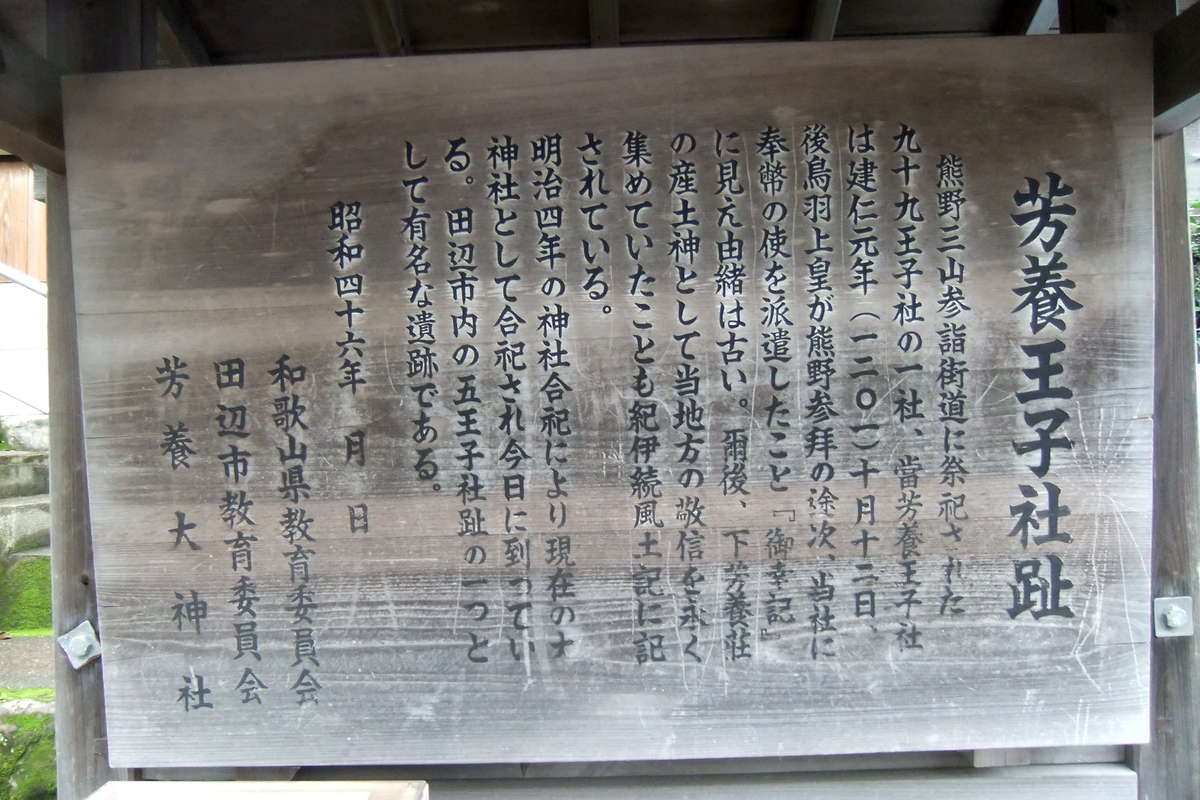 芳養王子社趾
熊野三山参詣街道に祭祀された
九十九王子社の一社、當芳養王子社
は建仁元年（一二〇一）十月十二日、
後鳥羽上皇が熊野参拝の途次、当社に
奉幣の使を派遣したこと『御幸記』
に見え由緒は古い。爾後、下芳養荘
の産土神として当地方の敬信を永く
集めていたことも紀伊続風土記に記
されている。
明治四年の神社合祀により現在の大
神社として合祀され今日に到ってい
る。田辺市内の五王子社趾の一つと
して有名な遺跡である。
昭和四十六年　月　日
和歌山県教育委員会
田辺市教育委員会
芳養大神社